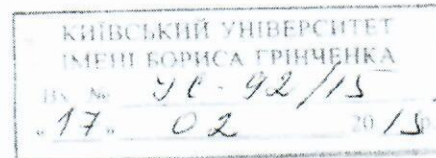 КИЇВСЬКИЙ УНІВЕРСИТЕТ
ІМЕНІ БОРИСА ГРІНЧЕНКА
Вх. № УС - 92/15
„17„ 02 2015р.